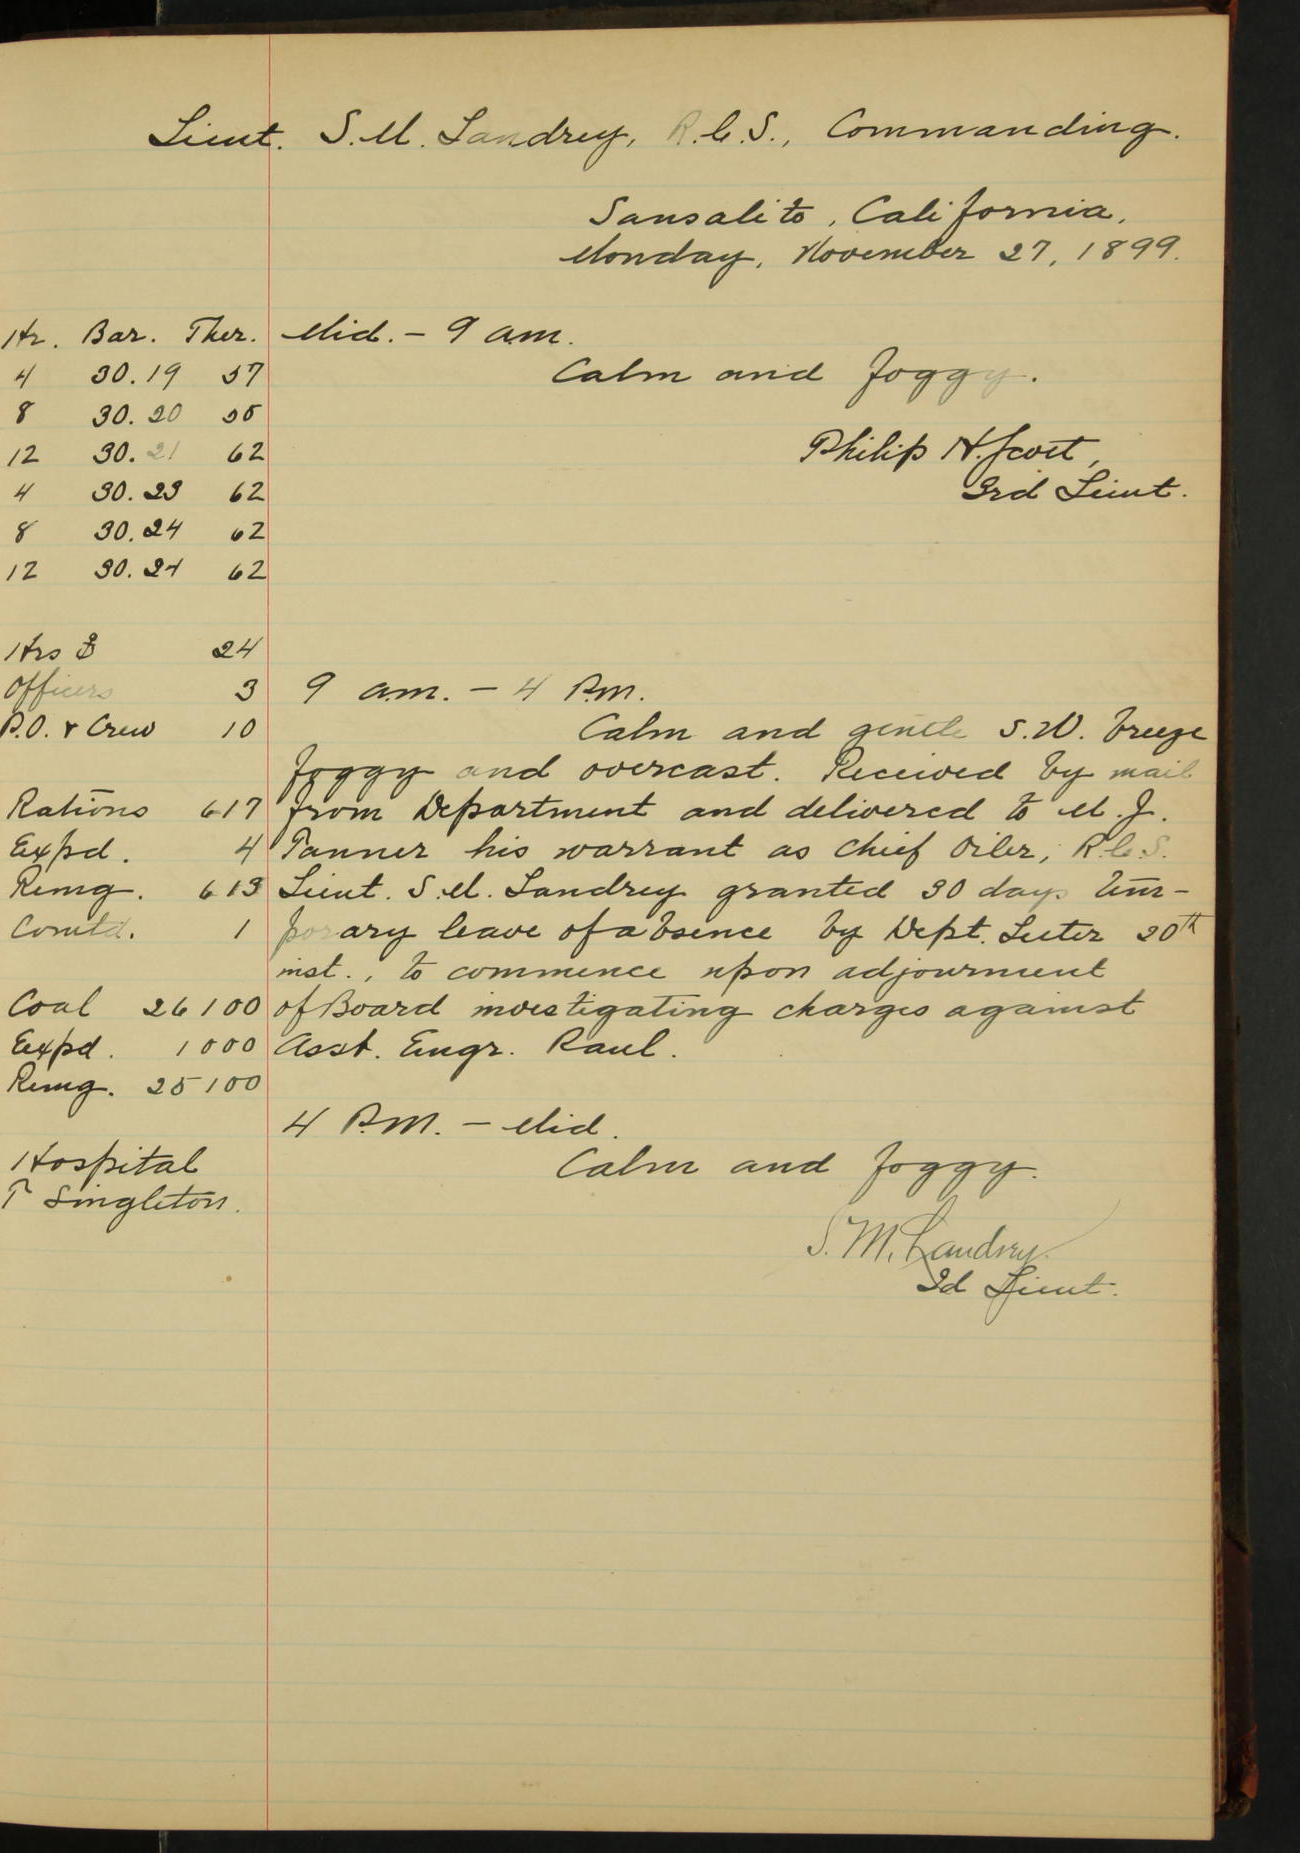 Lieut. S.M. Landrey, R.C.S., Commanding.
Sausalito, California,
Monday, November 27, 1899.
Hr. Bar. Ther.
4 30.19 57
8 30.20 56
12 30.21 62
4 30.23 62
8 30.24 62
12 30.24 62
Hrs ⚓ 24
Officers 3
P.O. & Crew 10
Rations 617
Expd. 4
Remg. 613
Comtd. 1
Coal 26100
Expd. 1000
Remg. 25100
Hospital
T Singleton.
Mid. – 9 a.m.
Calm and foggy.
Philip H. Scott,
3rd Lieut.
9 a.m. – 4 P.M.
Calm and gentle S.W. breeze
foggy and overcast. Received by mail
from Department and delivered to M. J.
Tanner his warrant as Chief Oiler, R.C.S.
Lieut. S.M. Landrey granted 30 days tem-
porary leave of absence by Dept. Letter 20th
inst., to commence upon adjournment
of Board investigating charges against
Asst. Engr. Raul.
4 P.M. – Mid.
Calm and foggy.
S. M. Landrey.
2d Lieut.